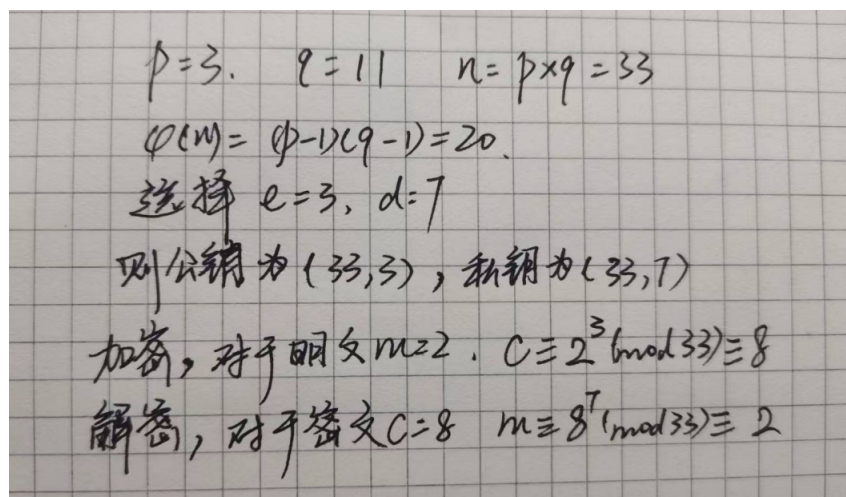 p=3. q=11 n=p×q=33
φ(n)=(p-1)(q-1)=20.
选择 e=3, d=7
则公钥为(33,3),私钥为(33,7)
加密,对于明文m=2. C≡2³(mod33)≡8
解密,对于密文C=8 m≡8⁷(mod33)≡2